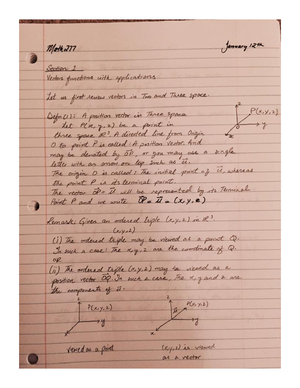 Math 277
January 12th
Section 1
Vector functions with applications
Let us first review vectors in Two and Three space.
Defn (1): A position vector in Three space
Let P(x, y, z) be a point in
three space R³. A directed line from Origin
O to point P is called (A position vector) And
may be denoted by OP, or you may use a single
letter with an arrow on top such as u.
The origin O is called: The initial point of u, whereas
the point P is its terminal point.
The vector OP = u will be represented by its Terminal
Point P and we write OP = u = (x, y, z)
z
P(x, y, z)
y
x
Remark: Given an ordered triple (x, y, z) in R³
(x, y, z)
(i) The ordered triple may be viewed as a point Q.
In such a case: The x, y, z are the coordinates of Q.
OR
(ii) The ordered triple (x, y, z) may be viewed as a
position vector OQ. In such a case, the x, y and z are
the components of u.
z
P(x, y, z)
y
x
z
P(x, y, z)
y
x
viewed as a point
(x, y, z) is viewed
as a vector